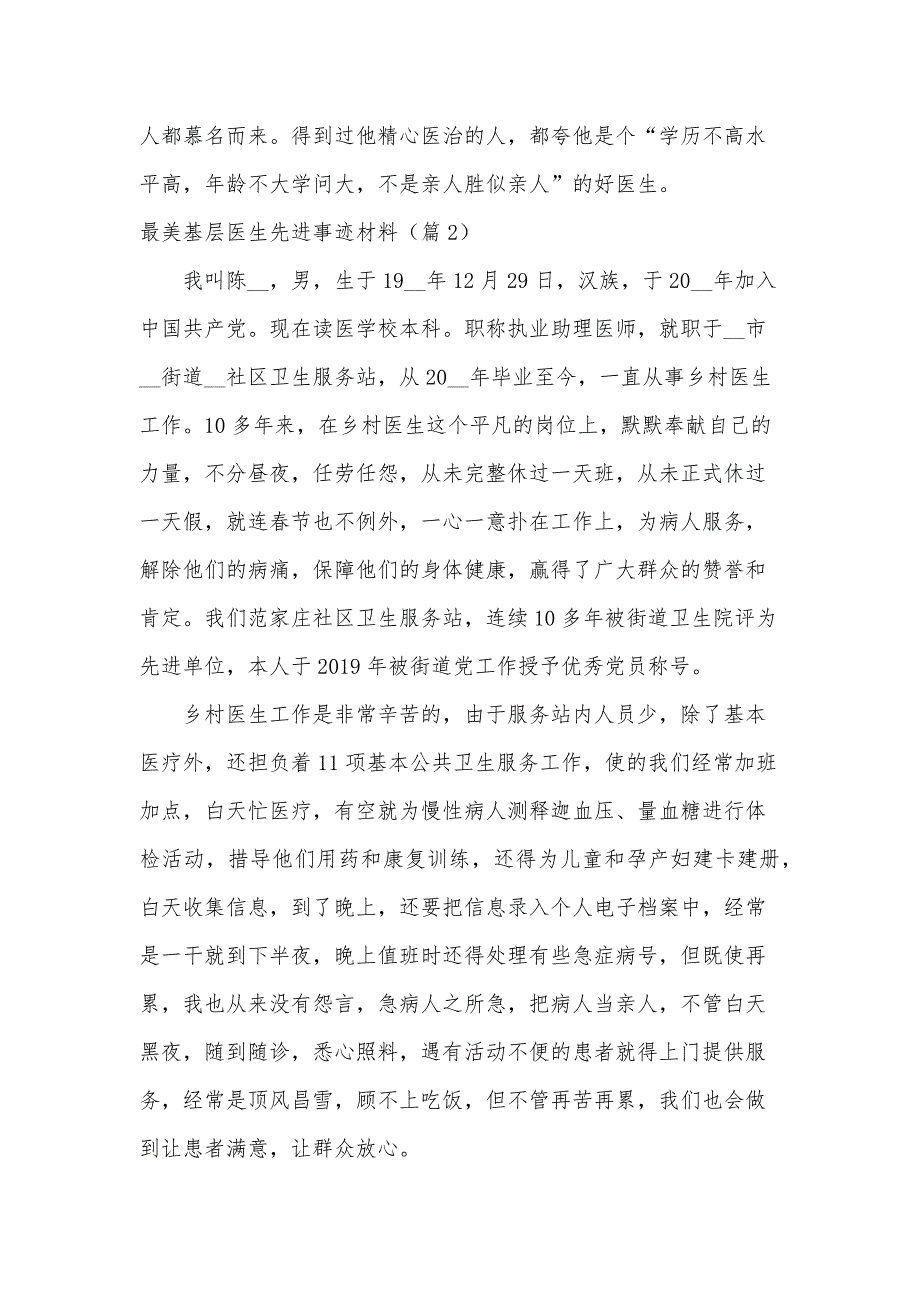 人都慕名而来。得到过他精心医治的人，都夸他是个“学历不高水
平高，年龄不大学问大，不是亲人胜似亲人”的好医生。
最美基层医生先进事迹材料（篇2）
我叫陈__，男，生于19__年12月29日，汉族，于20__年加入
中国共产党。现在读医学校本科。职称执业助理医师，就职于__市
__街道__社区卫生服务站，从20__年毕业至今，一直从事乡村医生
工作。10多年来，在乡村医生这个平凡的岗位上，默默奉献自己的
力量，不分昼夜，任劳任怨，从未完整休过一天班，从未正式休过
一天假，就连春节也不例外，一心一意扑在工作上，为病人服务，
解除他们的病痛，保障他们的身体健康，赢得了广大群众的赞誉和
肯定。我们范家庄社区卫生服务站，连续10多年被街道卫生院评为
先进单位，本人于2019年被街道党工作授予优秀党员称号。
乡村医生工作是非常辛苦的，由于服务站内人员少，除了基本
医疗外，还担负着11项基本公共卫生服务工作，使的我们经常加班
加点，白天忙医疗，有空就为慢性病人测释迦血压、量血糖进行体
检活动，措导他们用药和康复训练，还得为儿童和孕产妇建卡建册，
白天收集信息，到了晚上，还要把信息录入个人电子档案中，经常
是一干就到下半夜，晚上值班时还得处理有些急症病号，但既使再
累，我也从来没有怨言，急病人之所急，把病人当亲人，不管白天
黑夜，随到随诊，悉心照料，遇有活动不便的患者就得上门提供服
务，经常是顶风昌雪，顾不上吃饭，但不管再苦再累，我们也会做
到让患者满意，让群众放心。